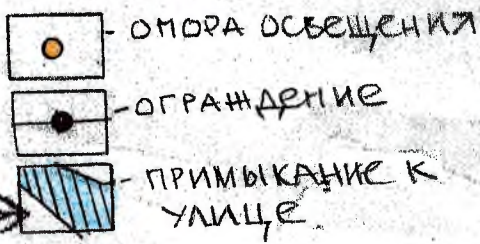 - ОПОРА ОСВЕЩЕНИЯ
- ОГРАЖДЕНИЕ
- ПРИМЫКАНИЕ К
УЛИЦЕ